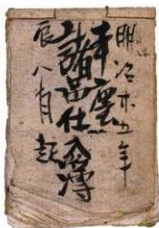 明治廿五年
諸品仕入簿
辰八月起